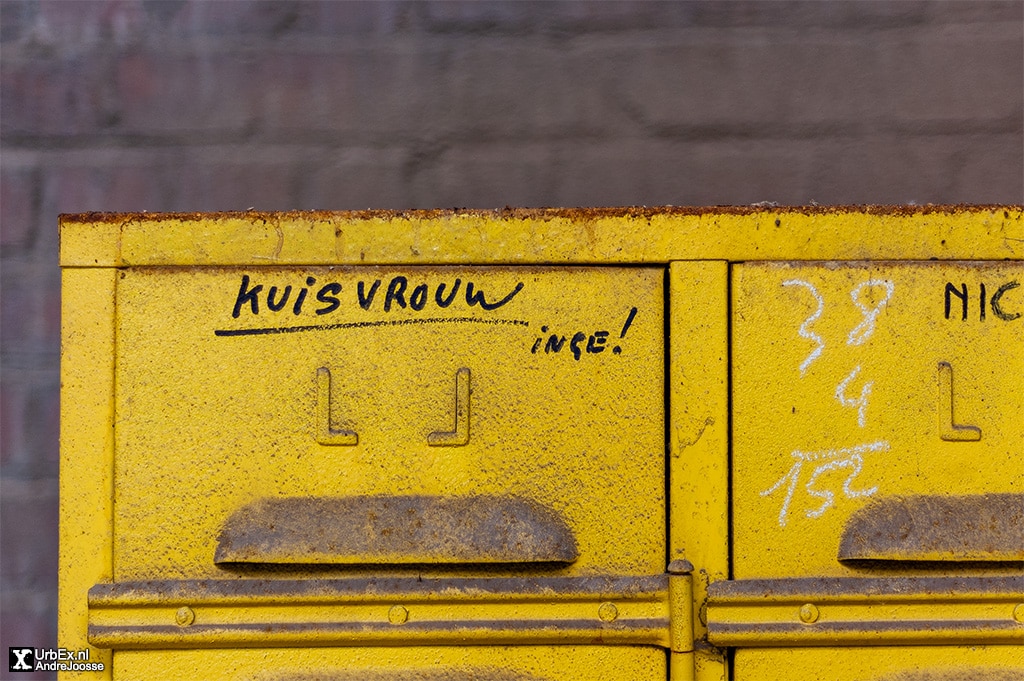 KUISVROUW
INGE!
38
4
152
NIC
UrbEx.nl
AndreJoosse